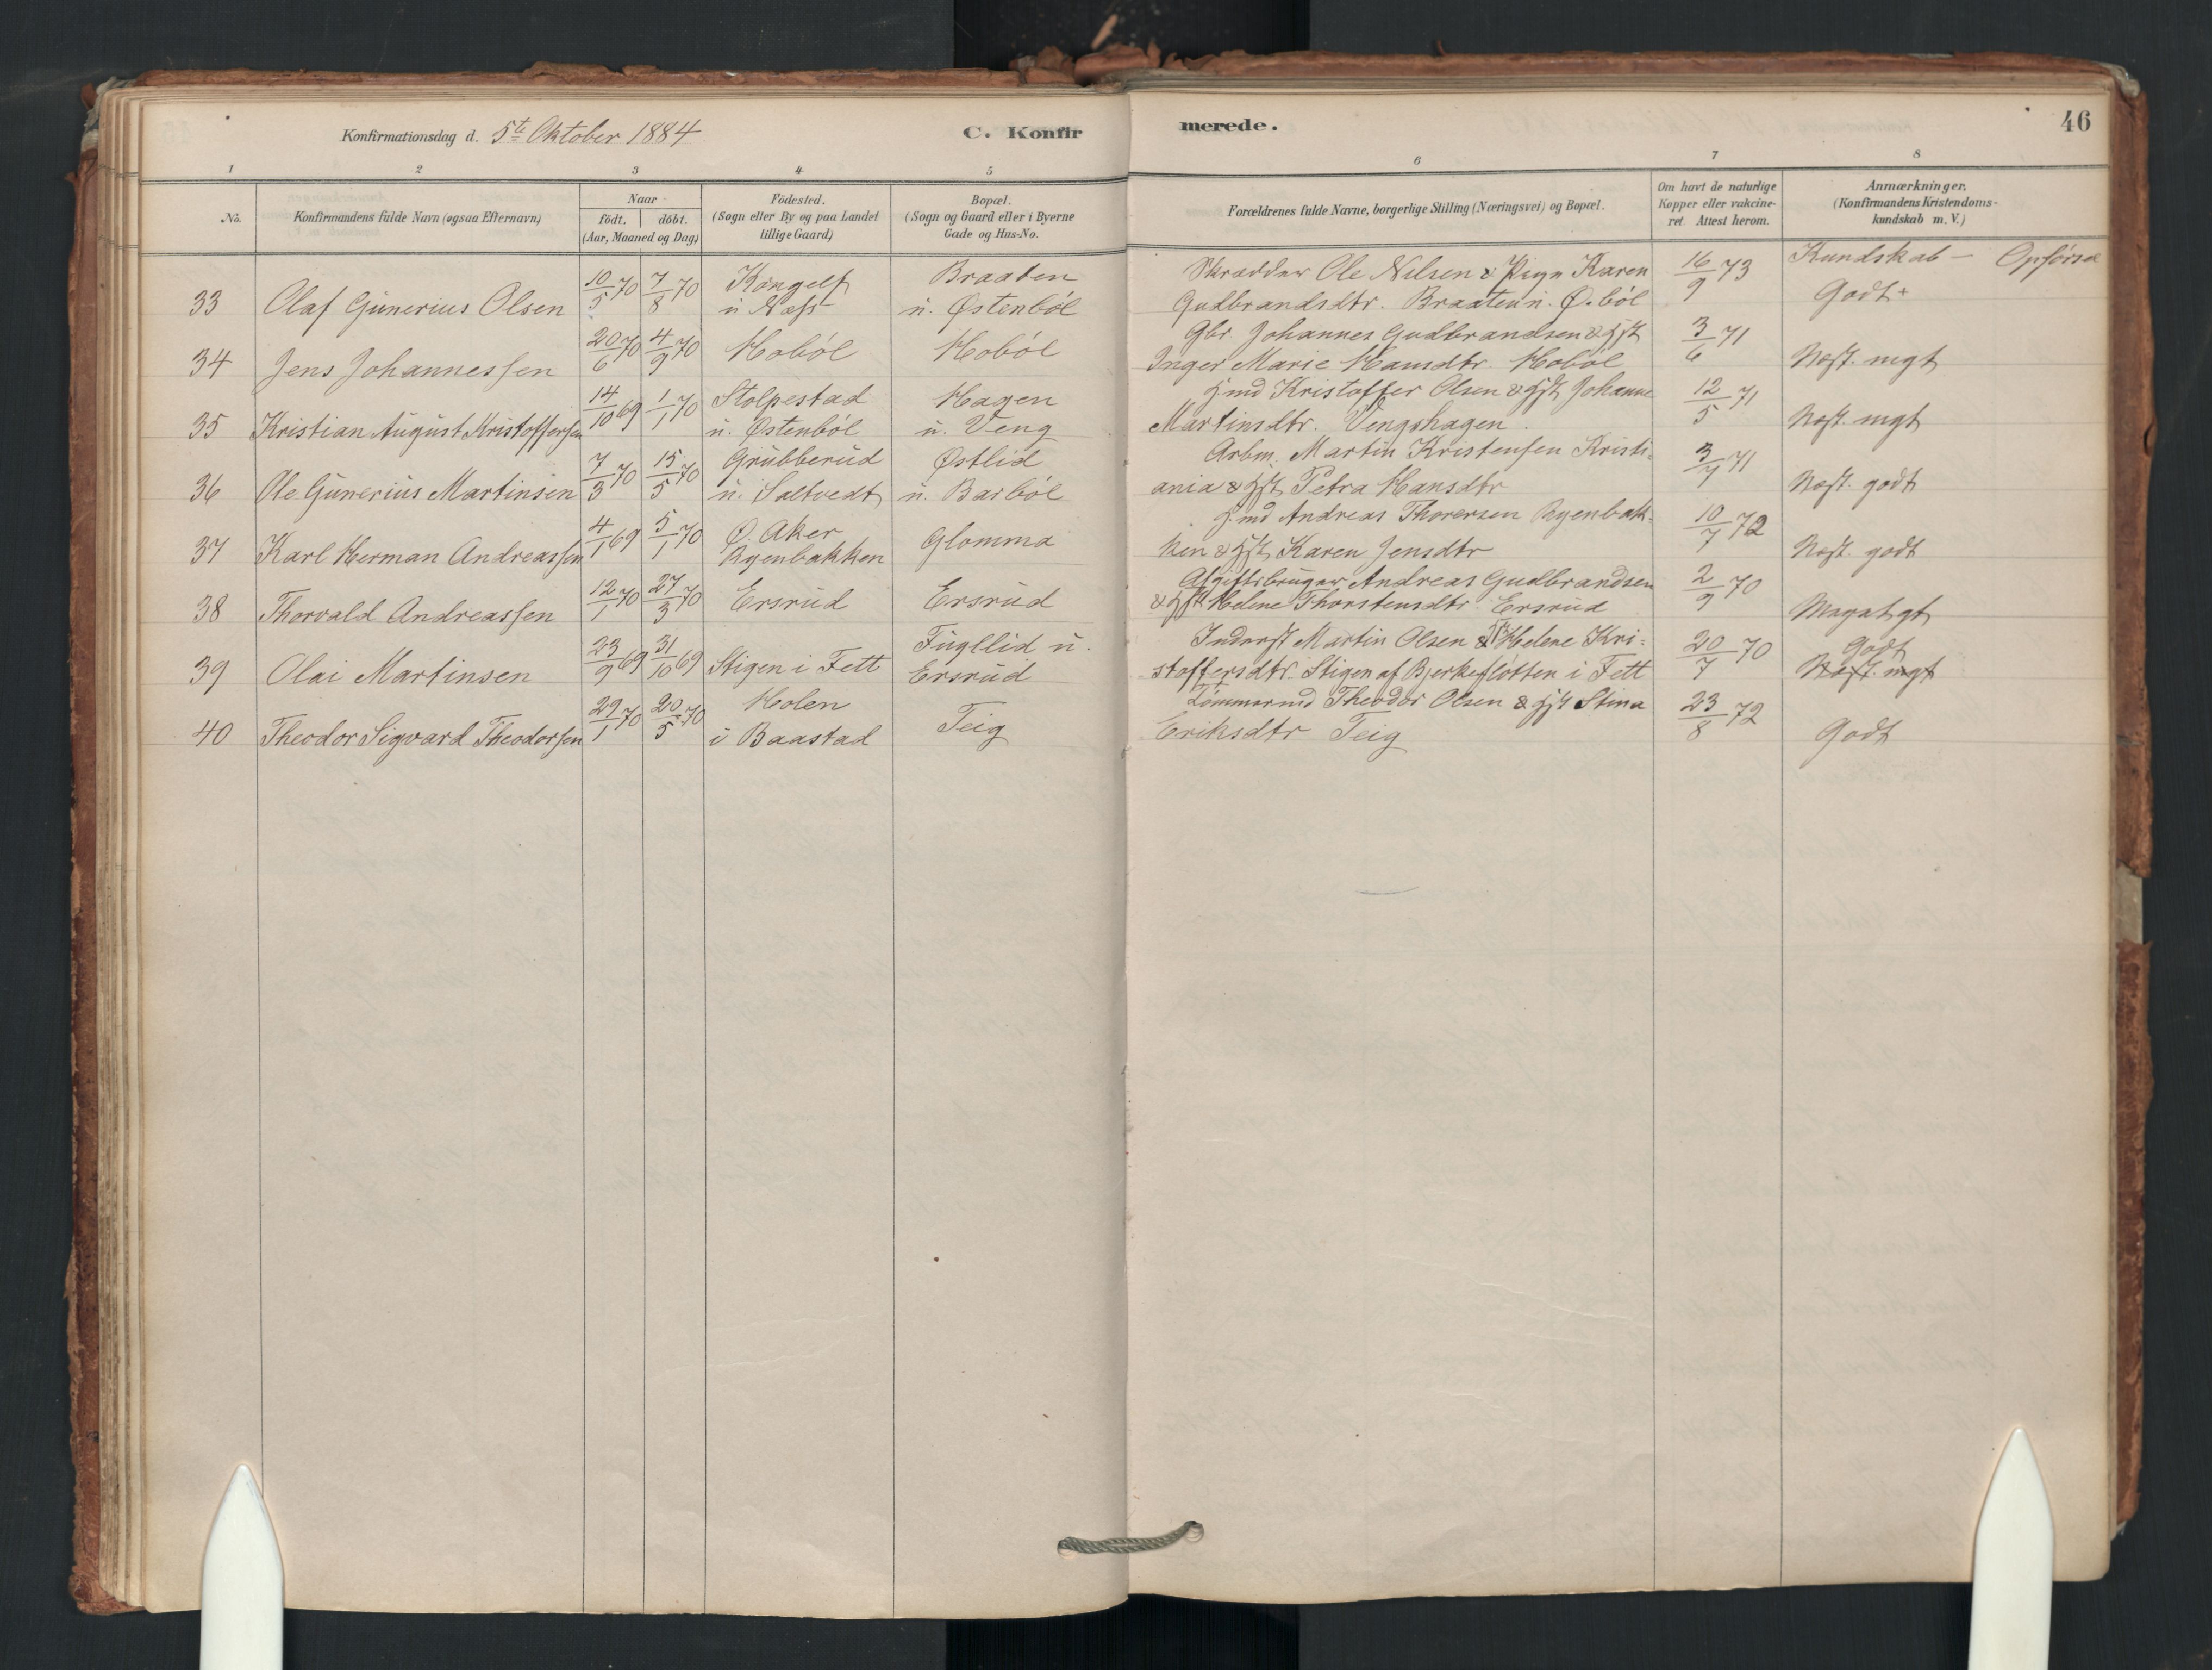 Konfirmationsdag d. 5te Oktober 1884
C. Konfirmerede.
46
1 2 3 4 5 6 7 8
No.
Konfirmandens fulde Navn (ogsaa Efternavn)
Naar
födt. döbt.
(Aar, Maaned og Dag)
Födested.
(Sogn eller By og paa Landet
tillige Gaard)
Bopæl.
(Sogn og Gaard eller i Byerne
Gade og Hus-No.
Forældrenes fulde Navne, borgerlige Stilling (Næringsvei) og Bopæl.
Om havt de naturlige
Kopper eller vakcine-
ret Attest herom.
Anmærkninger.
(Konfirmandens Kristendoms-
kundskab m. V.)
Kundskab — Opførsel
33 Olaf Gunerius Olsen 10/5 70 7/8 70 Kongelf
u Næss
Braaten
u. Østenböl
Skrædder Ole Nilsen & Pige Karen
Gudbrandsdtr. Braaten u. Ø.böl
16/9 73 Godt +
34 Jens Johannessen 20/6 70 4/9 70 Hoböl Hoböl
Gbr. Johannes Gudbrandsen & Hst
Inger Marie Hansdtr. Hoböl
3/6 71 Næst. mgt
35 Kristian August Kristoffersen 14/10 69 1/1 70 Stolpestad
u. Østenböl
Hagen
u. Veng
Hmd Kristoffer Olsen & Hst Johanne
Martinsdtr. Vengshagen.
12/5 71 Næst. mgt
36 Ole Gunerius Martinsen 7/3 70 15/5 70 Grubberud
u. Saltvedt
Østlid
u. Barböl
Arbm. Martin Kristensen Kristi-
ania & Hst Petra Hansdtr
3/7 71 Næst. godt
37 Karl Herman Andreassen 4/1 69 5/1 70 Ø. Aker
Ryenbakken
Glomma
Hmd Andreas Thorersen Ryenbak-
ken & Hst Karen Jensdtr
10/7 72 Næst. godt
38 Thorvald Andreassen 12/1 70 27/3 70 Ersrud Ersrud
Afgiftsbruger Andreas Gudbrandsen
& Hst Helene Thorstensdtr. Ersrud
2/9 70 Meget gt
39 Olai Martinsen 23/9 69 31/10 69 Stigen i Fett
Fugllid u.
Ersrud
Inderst Martin Olsen & Helene Kri-
stoffersdtr. Stigen af Bjerkeflötten i Fett
20/7 70 Godt
Næst. mgt
40 Theodor Sigvard Theodorsen 29/1 70 20/5 70 Holen
i Baastad
Teig
Tömmermd Theodor Olsen & Hst Stina
Eriksdtr Teig
23/8 72 Godt